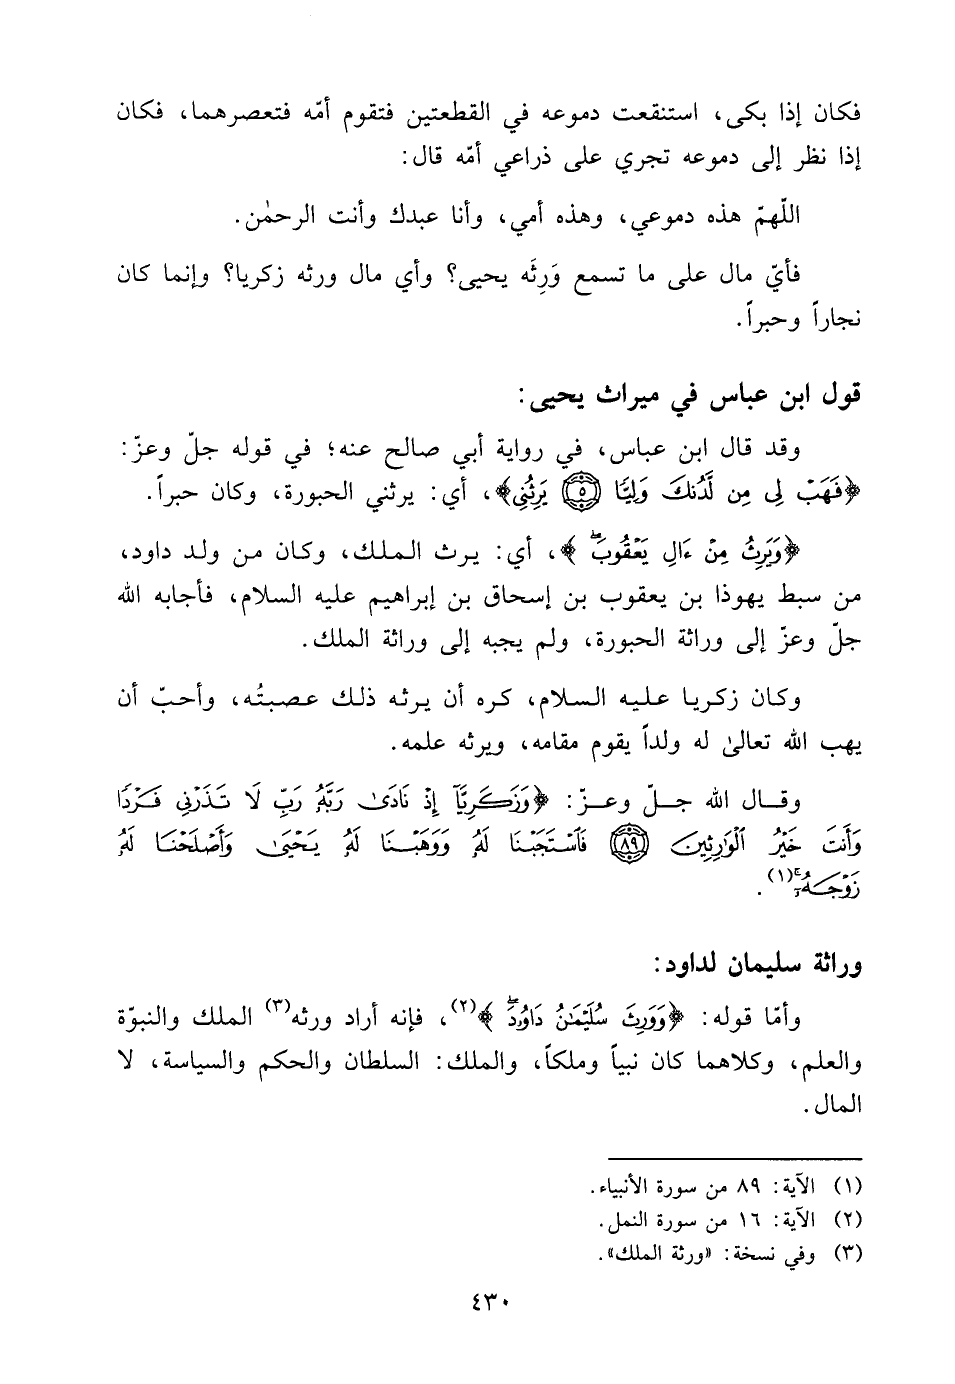 فكان إذا بكى، استنقعت دموعه في القطعتين فتقوم أمّه فتعصرهما، فكان
إذا نظر إلى دموعه تجري على ذراعي أمّه قال:
اللّهمّ هذه دموعي، وهذه أمي، وأنا عبدك وأنت الرحمٰن.
فأيّ مال على ما تسمع وَرِثَه يحيى؟ وأي مال ورثه زكريا؟ وإنما كان
نجاراً وحبراً.
قول ابن عباس في ميراث يحيى:
وقد قال ابن عباس، في رواية أبي صالح عنه؛ في قوله جلّ وعزّ:
﴿فَهَبْ لِى مِن لَّدُنكَ وَلِيًّا ۝٥ يَرِثُنِى﴾، أي: يرثني الحبورة، وكان حبراً.
﴿وَيَرِثُ مِنْ ءَالِ يَعْقُوبَۖ﴾، أي: يرث الملك، وكان من ولد داود،
من سبط يهوذا بن يعقوب بن إسحاق بن إبراهيم عليه السلام، فأجابه الله
جلّ وعزّ إلى وراثة الحبورة، ولم يجبه إلى وراثة الملك.
وكان زكريا عليه السلام، كره أن يرثه ذلك عصبتُه، وأحبّ أن
يهب الله تعالىٰ له ولداً يقوم مقامه، ويرثه علمه.
وقال الله جلّ وعزّ: ﴿وَزَكَرِيَّآ إِذْ نَادَىٰ رَبَّهُۥ رَبِّ لَا تَذَرْنِى فَرْدًا
وَأَنتَ خَيْرُ ٱلْوَٰرِثِينَ ۝٨٩ فَٱسْتَجَبْنَا لَهُۥ وَوَهَبْنَا لَهُۥ يَحْيَىٰ وَأَصْلَحْنَا لَهُۥ
زَوْجَهُۥٓ(١).
وراثة سليمان لداود:
وأمّا قوله: ﴿وَوَرِثَ سُلَيْمَٰنُ دَاوُۥدَۖ﴾(٢)، فإنه أراد ورثه(٣) الملك والنبوّة
والعلم، وكلاهما كان نبياً وملكاً، والملك: السلطان والحكم والسياسة، لا
المال.
(١) الآية: ٨٩ من سورة الأنبياء.
(٢) الآية: ١٦ من سورة النمل.
(٣) وفي نسخة: «ورثة الملك».
٤٣٠